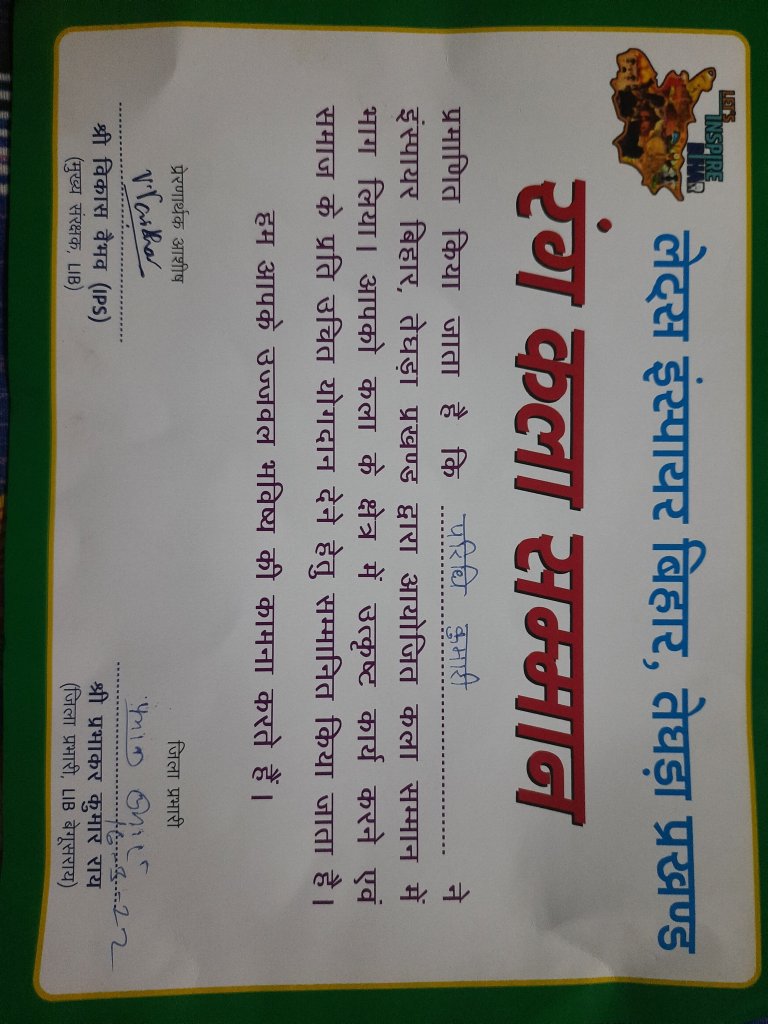 LET'S
INSPIRE
BIHAR
लेट्स इंस्पायर बिहार, तेघड़ा प्रखण्ड
रंग कला सम्मान
प्रमाणित किया जाता है कि परिधि कुमारी ने
इंस्पायर बिहार, तेघड़ा प्रखण्ड द्वारा आयोजित कला सम्मान में
भाग लिया। आपको कला के क्षेत्र में उत्कृष्ट कार्य करने एवं
समाज के प्रति उचित योगदान देने हेतु सम्मानित किया जाता है।
हम आपके उज्जवल भविष्य की कामना करते हैं।
प्रेरणार्थक आशीष
श्री विकास वैभव (IPS)
(मुख्य संरक्षक, LIB)
जिला प्रभारी
श्री प्रभाकर कुमार राय
(जिला प्रभारी, LIB बेगूसराय)